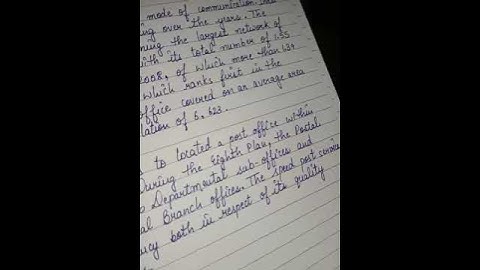 mode of communication.
ing over the years. The
ing the largest network of
with its total number of 155
2008, of which more than 139
which ranks first in the
office covered on an average area
lation of 6,623.
to located a post office within
During the Eighth Plan, the Postal
Departmental sub-offices and
al Branch offices. The speed post service
ncy both in respect of its quality